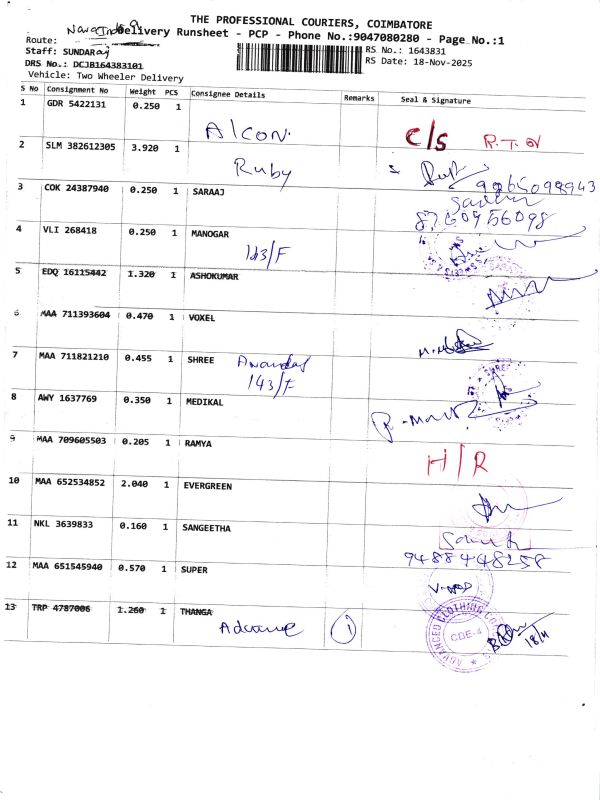 THE PROFESSIONAL COURIERS, COIMBATORE
Delivery Runsheet - PCP - Phone No.:9047080280 - Page No.:1
Route:
Staff: SUNDARaj
DRS No.: DCJB164383101
Vehicle: Two Wheeler Delivery
RS No.: 1643831
RS Date: 18-Nov-2025
S No Consignment No Weight PCS Consignee Details Remarks Seal & Signature
1 GDR 5422131 0.250 1 Alcon. C/S R.T.O
2 SLM 382612305 3.920 1 Ruby 9965098943
3 COK 24387940 0.250 1 SARAAJ 8760956098
4 VLI 268418 0.250 1 MANOGAR
143/F
5 EDQ 16115442 1.320 1 ASHOKUMAR
6 MAA 711393604 0.470 1 VOXEL
7 MAA 711821210 0.455 1 SHREE Anandas
143/F
8 AWY 1637769 0.350 1 MEDIKAL
9 MAA 709605503 0.205 1 RAMYA H/R
10 MAA 652534852 2.040 1 EVERGREEN
11 NKL 3639833 0.160 1 SANGEETHA
9488448258
12 MAA 651545940 0.570 1 SUPER
13 TRP 4787006 1.260 1 THANGA
Advance 1 ADVANCED CLOTHING CO
CBE-4
18/11